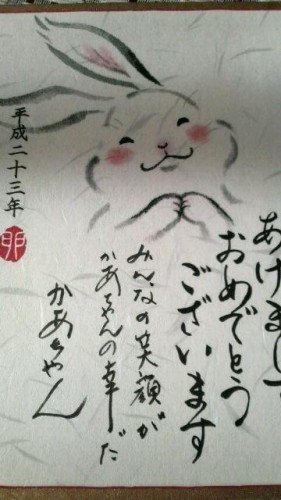 あけまして
おめでとう
ございます
みんなの笑顔が
かあちゃんの幸だ
かあちゃん
平成二十三年
卯